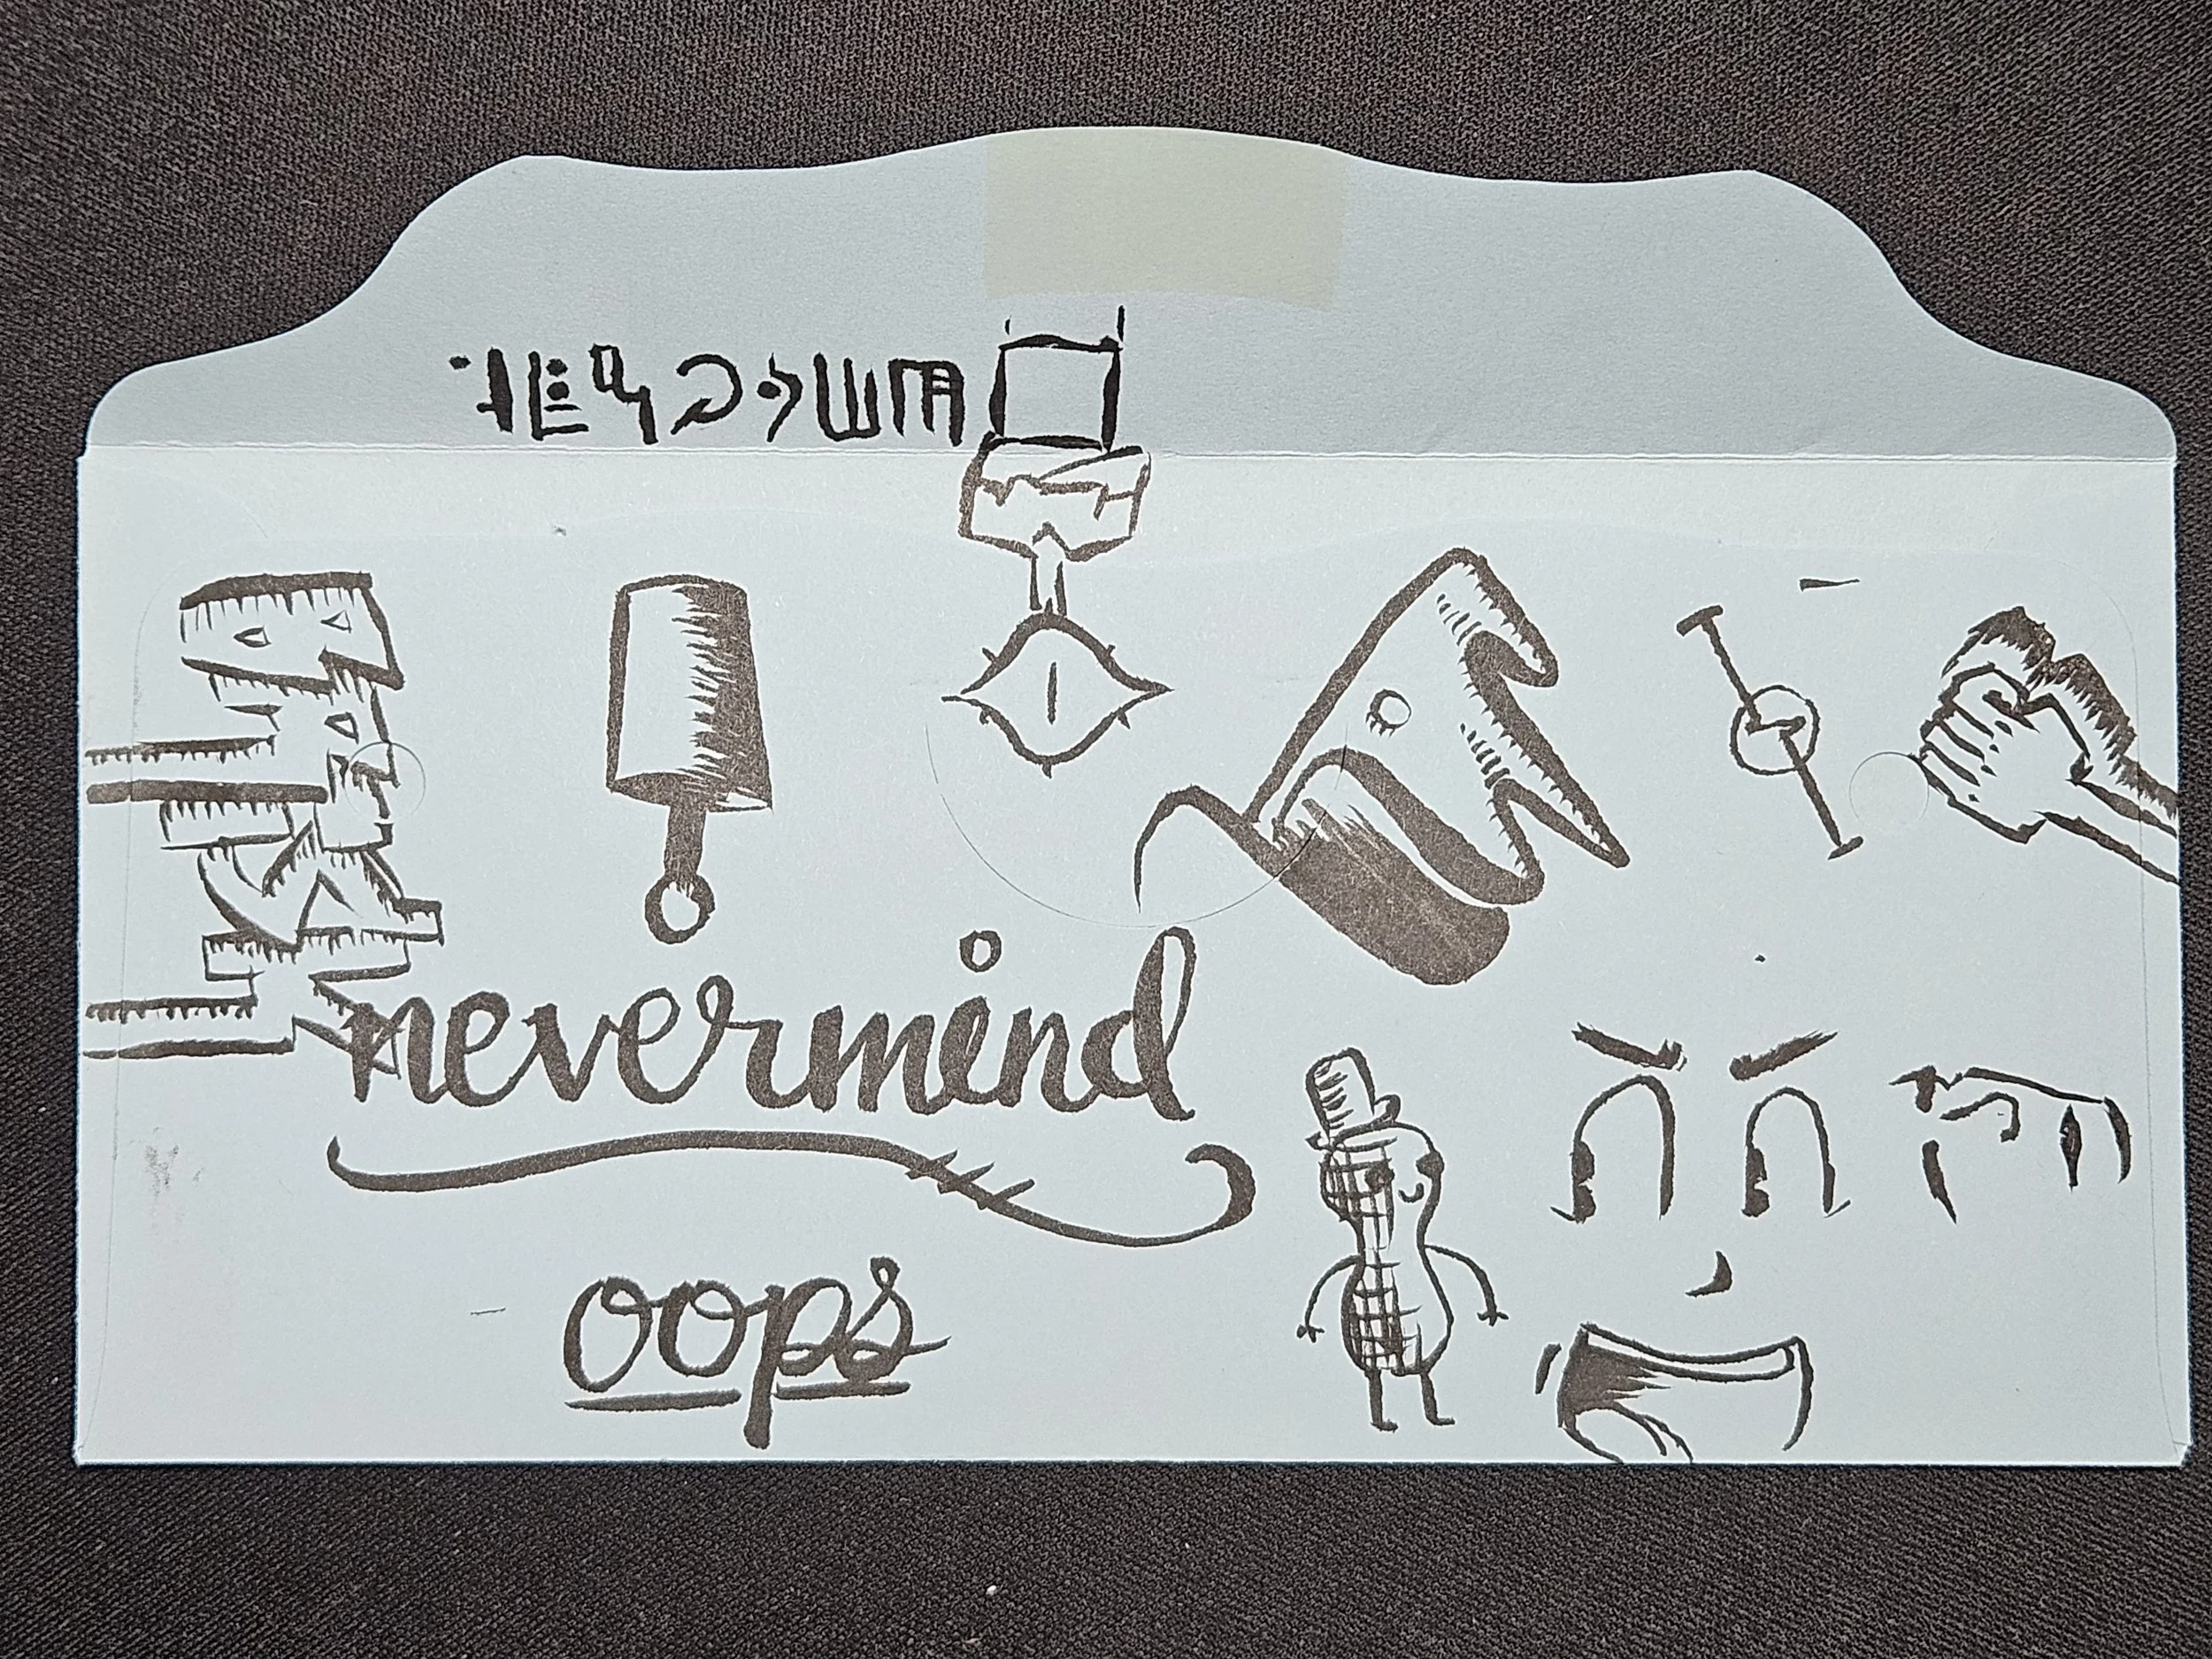 nevermind
oops